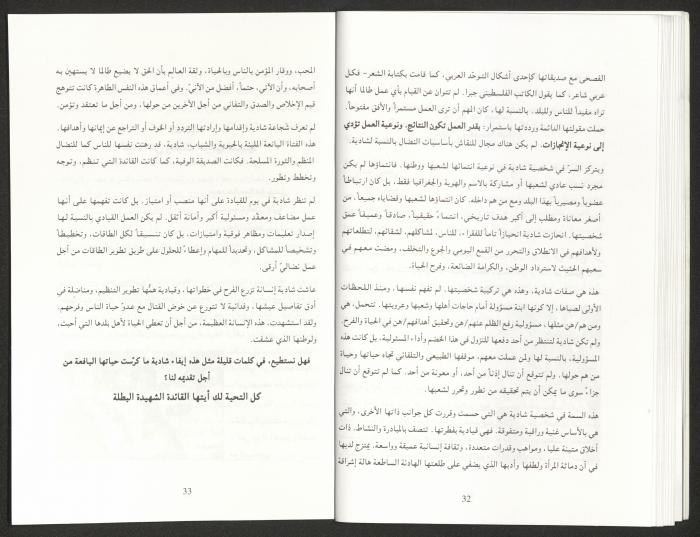 الفصحى مع صديقاتها كإحدى أشكال التوحّد العربي، كما قامت بكتابة الشعر- فكل
عربي شاعر، كما يقول الكاتب الفلسطيني جبرا. لم تتوان عن القيام بأي عمل طالما أنها
تراه مفيداً للناس وللبلد. بالنسبة لها، كان المهم أن ترى العمل مستمراً والأفق مفتوحاً.
حملت مقولتها الدائمة ورددتها باستمرار: بقدر العمل تكون النتائج، ونوعية العمل تؤدي
إلى نوعية الإنجازات. لم يكن هناك مجال للنقاش بأساسيات النضال بالنسبة لشادية.
ويتركز السرّ في شخصية شادية في نوعية انتمائها لشعبها ووطنها. فانتماؤها لم يكن
مجرد نسب عادي لشعبها أو مشاركة بالاسم والهوية والجغرافيا فقط، بل كان ارتباطاً
عضوياً ومصيرياً بهذا البلد ومع من هم داخله. كان انتماؤها لشعبها وقضاياه جميعاً، من
أصغر معاناة ومطلب إلى أكبر هدف تاريخي، انتماءً حقيقياً، صادقاً وعميقاً عمق
شخصيتها. انحازت شادية انحيازاً تاماً للفقراء، للناس، لمشاكلهم، لشقائهم، لتطلعاتهم
ولأهدافهم في الانطلاق والتحرر من القمع اليومي والجوع والتخلف، ومضت معهم في
سعيهم الحثيث لاسترداد الوطن، والكرامة الضائعة، وفرح الحياة.
هذه هي صفات شادية، وهذه هي تركيبة شخصيتها. لم تفهم نفسها، ومنذ اللحظات
الأولى لصباها، إلا كونها ابنة مسؤولة أمام حاجات أهلها وشعبها وعروبتها. تتحمل، هي
ومن هم/هن مثلها، مسؤولية رفع الظلم عنهم/هن وتحقيق أهدافهم/هن في الحياة والفرح.
ولم تكن شادية لتنتظر من أحد دفعها للنزول في هذا الخضم وأداء المسئولية، بل كانت هذه
المسؤولية، بالنسبة لها ولمن عملت معهم، موقفها الطبيعي والتلقائي تجاه حياتها وحياة
من هم حولها. ولم تتوقع أن تنال إذناً من أحد، أو معونة من أحد. كما لم تتوقع أن تنال
جزاءً سوى ما يمكن أن يتم تحقيقه من تطور وتحرر لشعبها.
هذه السمة في شخصية شادية هي التي حسمت وقررت كل جوانب ذاتها الأخرى، والتي
هي بالأساس غنية وراقية ومتفوقة. فهي قيادية بفطرتها. تتصف بالمبادرة والنشاط. ذات
أخلاق متينة عليا، ومواهب وقدرات متعددة، وثقافة إنسانية عميقة وواسعة. يمتزج لديها
في آن دماثة المرأة ولطفها وأدبها الذي يضفي على طلعتها الهادئة الساطعة هالة إشراقة
32
المحب، ووقار المؤمن بالناس وبالحياة، وثقة العالِم بأن الحق لا يضيع طالما لا يستهين به
أصحابه، وأن الآتي، حتماً، أفضل من الآنيّ. وفي أعماق هذه النفس الطاهرة كانت تتوهج
قيم الإخلاص والصدق والتفاني من أجل الآخرين من حولها، ومن أجل ما تعتقد وتؤمن.
لم تعرف شجاعة شادية وإقدامها وإرادتها التردد أو الخوف أو التراجع عن إيمانها وأهدافها.
هذه الفتاة اليانعة المليئة بالحيوية والشباب، شادية، قد رهنت نفسها للناس كما للنضال
المنظم والثورة المسلحة. فكانت الصديقة الوفية، كما كانت القائدة التي تنظم، وتوجه
وتخطط وتطور.
لم تنظر شادية في يوم للقيادة على أنها منصب أو امتياز. بل كانت تفهمها على أنها
عمل مضاعف ومعقّد ومسئولية أكبر وأمانة أثقل. لم يكن العمل القيادي بالنسبة لها
إصدار تعليمات ومظاهر فوقية وامتيازات، بل كان تنسيقاً لكل الطاقات، وتخطيطاً
وتشخيصاً للمشاكل، وتحديداً للمهام وإعطاءً للحلول على طريق تطوير الطاقات من أجل
عمل نضاليّ أرقى.
عاشت شادية إنسانة تزرع الفرح في خطواتها، وقيادية همّها تطوير التنظيم، ومناضلة في
أدق تفاصيل عيشها، وفدائية لا تتورع عن خوض القتال مع عدوّ حياة الناس وفرحهم.
ولقد استشهدت، هذه الإنسانة العظيمة، من أجل أن تعطي الحياة لأهل بلدها التي أحبت،
ولوطنها الذي عشقت.
فهل نستطيع، في كلمات قليلة مثل هذه إيفاء شادية ما كرّست حياتها اليافعة من
أجل تقديمه لنا؟
كل التحية لك أيتها القائدة الشهيدة البطلة
33